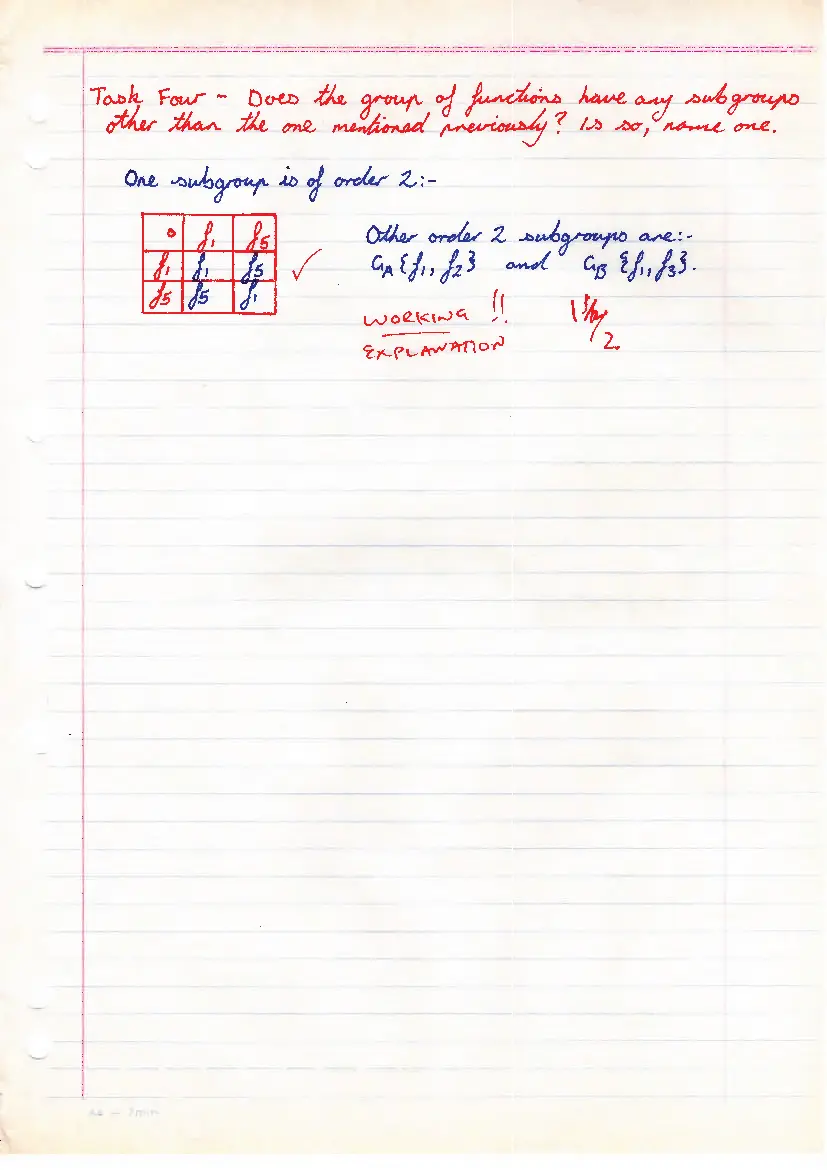 Task Four - Does the group of functions have any subgroups
other than the one mentioned previously? Is so, name one.
One subgroup is of order 2:-
∘ f₁ f₅
f₁ f₁ f₅
f₅ f₅ f₁
✓
Other order 2 subgroups are:-
G_A {f₁, f₂} and G_B {f₁, f₃}.
WORKING !!
EXPLANATION
2.